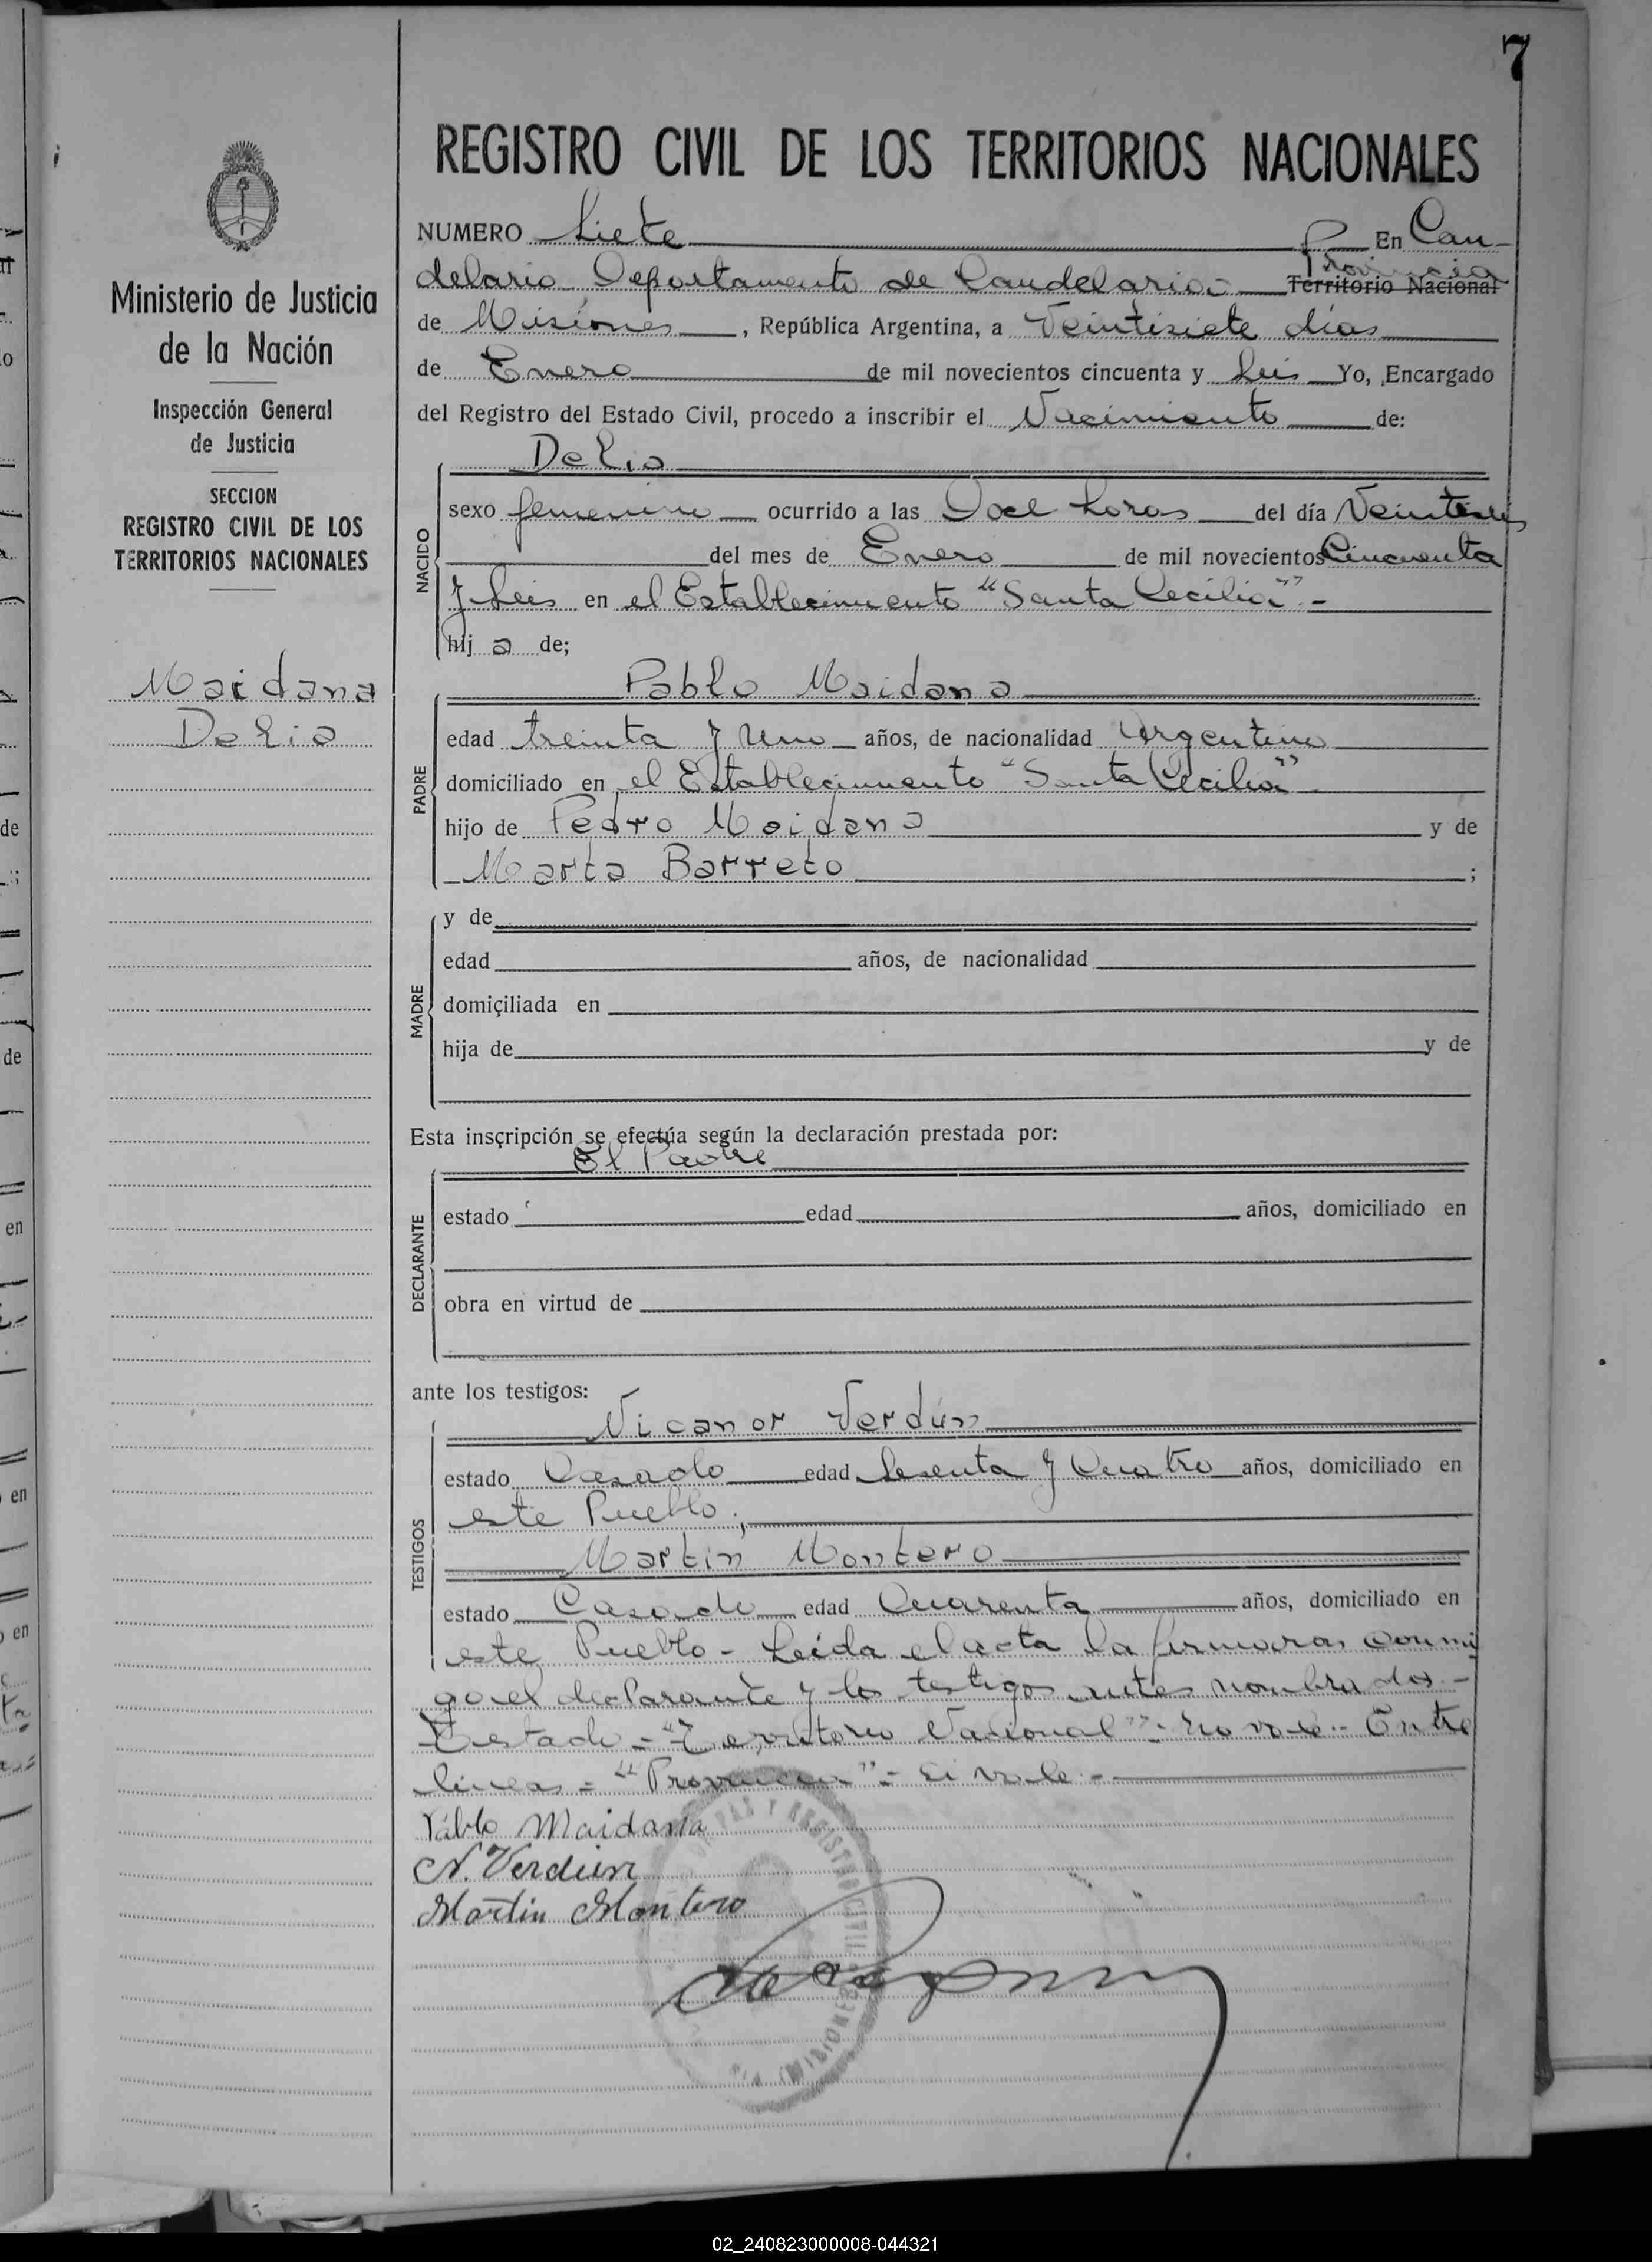 7
REGISTRO CIVIL DE LOS TERRITORIOS NACIONALES
Ministerio de Justicia
de la Nación
Inspección General
de Justicia
SECCION
REGISTRO CIVIL DE LOS
TERRITORIOS NACIONALES
Maidana
Delia
NUMERO Siete En Can-
Provincia
delaria Departamento de Candelaria.- Territorio Nacional
de Misiones, República Argentina, a Veintisiete días
de Enero de mil novecientos cincuenta y Seis Yo, Encargado
del Registro del Estado Civil, procedo a inscribir el Nacimiento de:
Delia
NACIDO
sexo femenino ocurrido a las Doce horas del día
del mes de Enero de mil novecientos Cincuenta
y Seis en el Establecimiento "Santa Cecilia".-
hija de;
Pablo Maidana
PADRE
edad treinta y uno años, de nacionalidad Argentino
domiciliado en el Establecimiento "Santa Cecilia"
hijo de Pedro Maidana y de
Marta Barreto ;
MADRE
y de
edad años, de nacionalidad
domiciliada en
hija de y de
Esta inscripción se efectúa según la declaración prestada por:
El Padre
DECLARANTE
estado edad años, domiciliado en
obra en virtud de
ante los testigos:
Nicanor Verdún
TESTIGOS
estado Casado edad Sesenta y Cuatro años, domiciliado en
este Pueblo;
Martin Montero
estado Casado edad Cuarenta años, domiciliado en
este Pueblo - Leida el acta la firmaron conmi
go el declarante y los testigos antes nombrados.-
Testado - "Territorio Nacional" - no vale.- Entre
lineas = "Provincia" - Si vale.-
Pablo Maidana
N. Verdún
Martin Montero
02_240823000008-044321